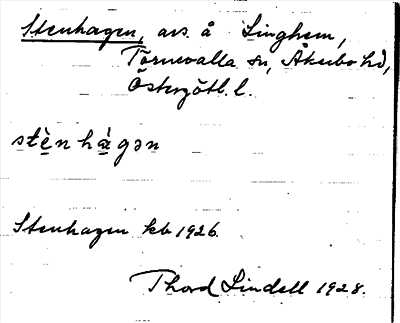 Stenhagen, avs. å Linghem,
Törnevalla sn, Åkerbo hd,
Östergötl. l.
stè̠n hà̠gən
Stenhagen kb 1926.
Thord Lindell 1928.